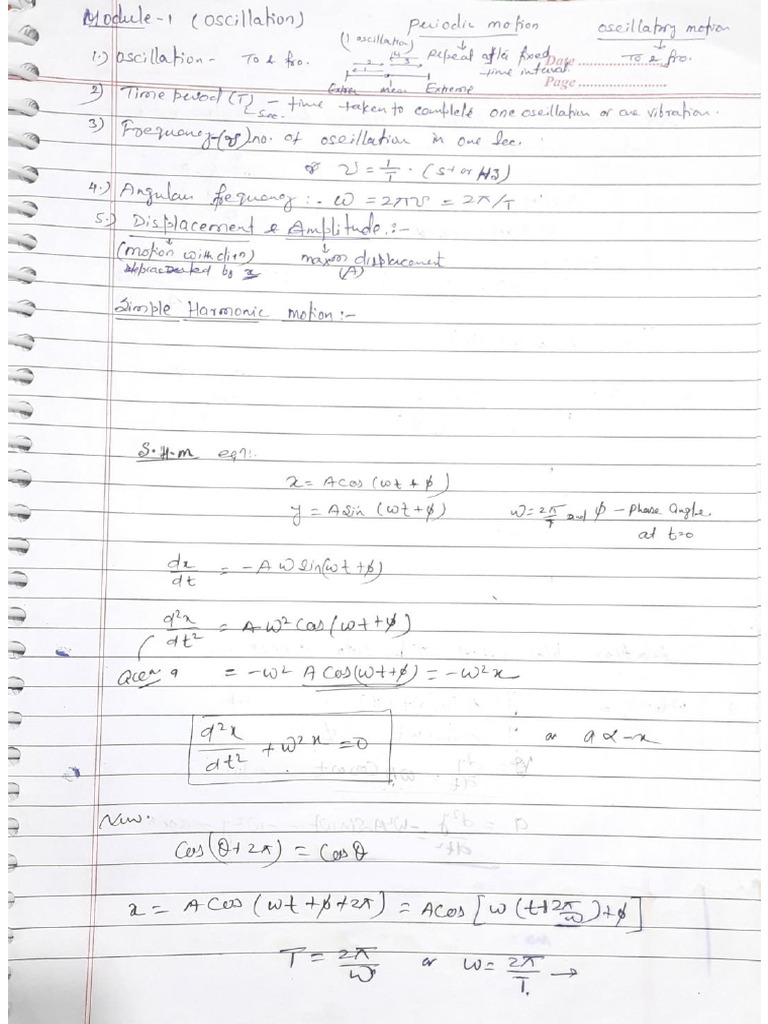 Module-1 (Oscillation)
periodic motion
oscillatory motion
(1 oscillation)
repeat after fixed time interval.
To & fro.
Date
Page
1.) Oscillation - To & fro.
Extreme mean Extreme
2) Time period (T) - time taken to complete one oscillation or one vibration.
Sec.
3) Frequency-(ν) no. of oscillation in one Sec.
or ν = 1/T . (s⁻¹ or Hz)
4.) Angular frequency :- ω = 2πν = 2π/T
5.) Displacement & Amplitude :-
(motion with dirn)
maxm displacement
(A)
by x
Simple Harmonic motion :-
S.H.m eqn:.
x = A cos (ωt + φ)
y = A sin (ωt + φ)
ω = 2π/T and φ - phase angle
at t=0
dx/dt = -A ω sin(ωt + φ)
d²x/dt² = -A ω² cos(ωt + φ)
a = -ω² A cos(ωt + φ) = -ω²x
d²x/dt² + ω²x = 0
or a ∝ -x
Now.
Cos(θ + 2π) = Cos θ
x = A Cos (ωt + φ + 2π) = A cos [ω (t + 2π/ω) + φ]
T = 2π/ω or ω = 2π/T. →